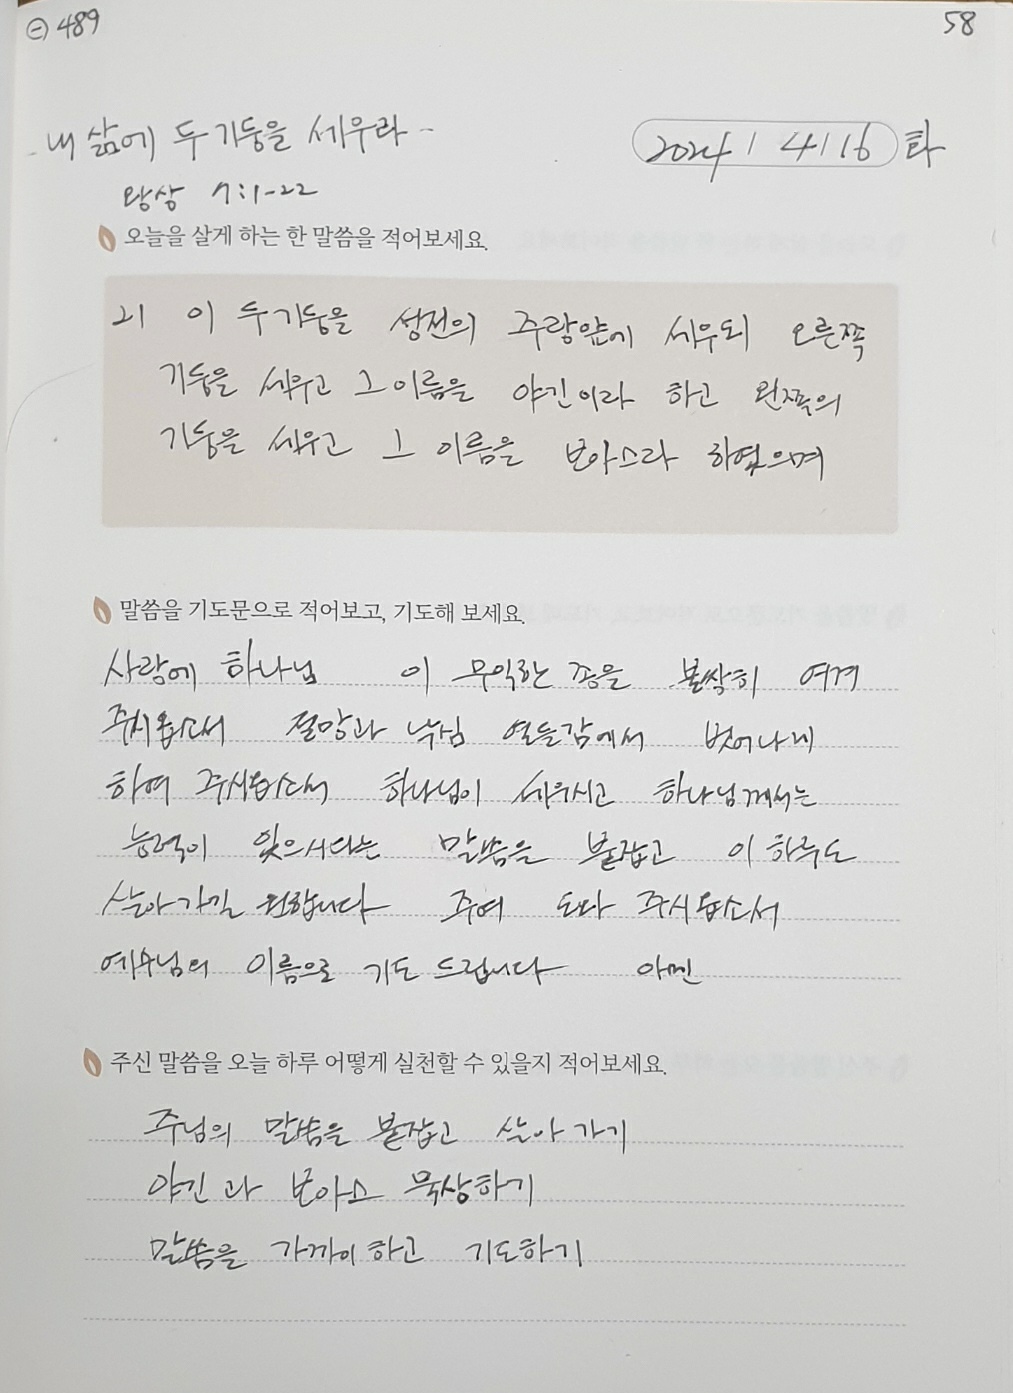 ㊀ 489
58
- 내 삶에 두 기둥을 세우라 -
2024 / 4 / 16 화
왕상 7:1-22
오늘을 살게 하는 한 말씀을 적어보세요.
21 이 두 기둥을 성전의 주랑앞에 세우되 오른쪽
기둥을 세우고 그 이름을 야긴이라 하고 왼쪽의
기둥을 세우고 그 이름을 보아스라 하였으며
말씀을 기도문으로 적어보고, 기도해 보세요.
사랑에 하나님 이 무익한 종을 불쌍히 여겨
주시옵소서 절망과 낙심 열등감에서 벗어나게
하여 주시옵소서 하나님이 세우시고 하나님께서는
능력이 있으시다는 말씀을 붙잡고 이 하루도
살아가길 원합니다 주여 도와 주시옵소서
예수님의 이름으로 기도 드립니다 아멘
주신 말씀을 오늘 하루 어떻게 실천할 수 있을지 적어보세요.
주님의 말씀을 붙잡고 살아가기
야긴과 보아스 묵상하기
말씀을 가까이하고 기도하기